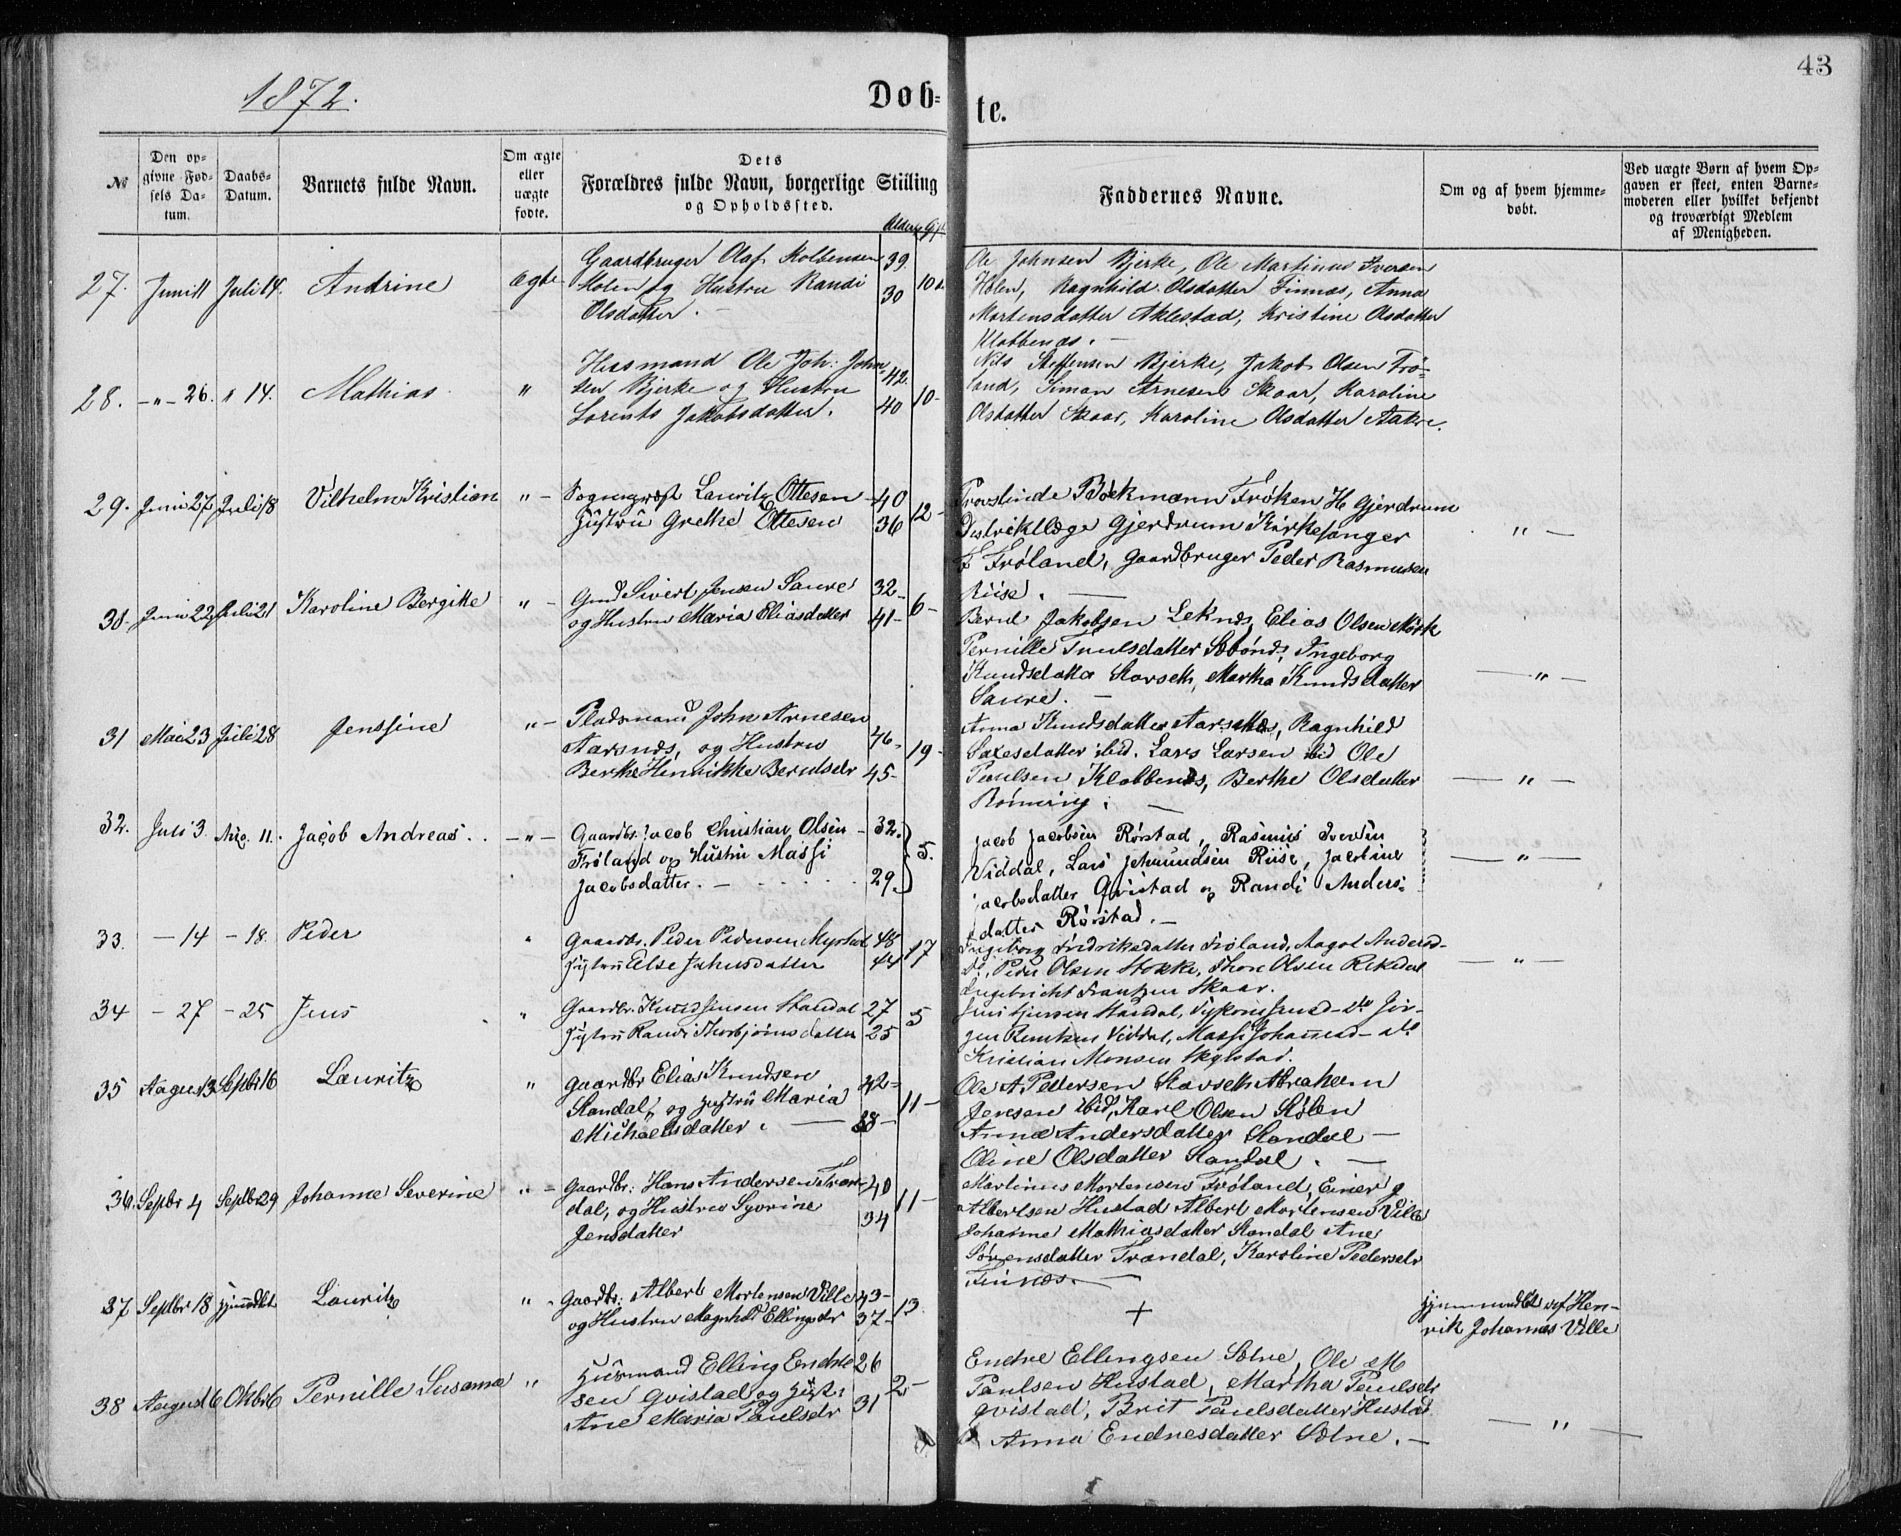 43
1872.
Døb-
te.
№
Den op-
givne Fød-
sels Da-
tum.
Daabs-
Datum.
Barnets fulde Navn.
Om ægte
eller
uægte
fødte.
Dets
Forældres fulde Navn, borgerlige Stilling
og Opholdssted.
Alder
Faddernes Navne.
Om og af hvem hjemme-
døbt.
Ved uægte Børn af hvem Op-
gaven er skeet, enten Barne-
moderen eller hvilket bekjendt
og troværdigt Medlem
af Menigheden.
27. Juni 11 Juli 14. Andrine ægte
Gaardbruger Olaf Kolbensen 39.
Stolen og Hustru Randi 30 10
Olsdatter.
Ole Johnsen Bjerke, Ole Martinus Iversen
Holen, Ragnhild Olsdatter Finnæs, Anna
Mortensdatter Aklestad, Kristine Olsdatter
Klobbenæs. -
28. - " - 26. " 14. Mathias "
Husmand Ole Joh: John-
sen Bjerke og Hustru 42.
Lorents Jakobsdatter. 40 10-
Nils Steffensen Bjerke, Jakob Olsen Frø-
land, Simon Arnesen Skaar, Karoline
Olsdatter Skaar, Karoline Olsdatter Aakre.
29. Juni 27 Juli 18 Vilhelm Kristian " -
Sogneprest Lauritz Ottesen - 40
Hustru Grethe Ottesen 36 12-
Provstinde Bøckmann Frøken H Gjerdrum
Distriktlæge Gjerdrum Kirkesanger
Frøland, Gaardbruger Peder Rasmusen
Riise. - " -
30. Juni 22 Juli 21 Karoline Bergitte " -
Gmd Sivert Jensen Saure 32-
og Hustru Maria Eliasdatter 41- 6-
Bernt Jakobsen Leknæs, Elias Olsen Mørk
Pernille Truulsdatter Sæbønæs, Ingeborg
Knudsdatter Stavseth, Martha Knudsdatter
Saure. - " -
31 Mai 23 Juli 28 Jenssine " -
Pladsmand John Arnesen
Aarsnæs, og Hustru 46-
Berthe Henrikke Berntsdr 45- 19-
Anna Knudsdatter Aarsnæs, Ragnhild
Saxesdatter ibid. Lars Larsen ibid Ole
Paulsen Klobbenæs, Berthe Olsdatter
- " -
32. Juli 3. Aug. 11. Jacob Andreas. - " -
Gaardbr. Jacob Christian Olsen - 32.
Frøland og Hustru Massi 5.
Jacobsdatter. - 29.
Jacob Jacobsen Rørstad, Rasmus Iversen
Viddal, Lars Johnundsen Riise, Jacobine
Jacobsdatter Qvistad og Randi Anders-
datter Rørstad. - - " -
33. - 14 - 18. Peder "
Gaardbr. Peder Pedersen 48
Hustru Else Jakusdatter 44 17
Ingeborg Fredriksdatter Frøland, Aagot Andersd-
Peder Olsen Stokke, Thore Olsen
Ingebricht Frantzen Skaar. - " -
34 - 27 - 25 Jens "
Gaardbr. Knud Jensen Standal 27
Hustru Randi Thorbjørnsdatter 25 5
Jens Jensen Standal,
gen Berntzen Viddal, Massi
Kristian Monsen Skylstad.
35 August 3 Septbr 16 Lauritz "
Gaardbr Elias Knudsen 42-
Standal, og Hustru Maria 11-
Michaelsdatter. - 38-
Ole A Pedersen Stavseth Abraham
Jensen ibid, Karl Olsen Stølen
Anna Andersdatter Standal -
Oline Olsdatter Standal. -
36. Septbr 4 Septbr 29 Johanne Severine " -
Gaardbr: Hans Andersen Tran- 40
dal, og Hustru Syvrine 11-
Jensdatter 34
Martinus Mortensen Frøland, Einer
Albertsen Hustad Albert Mortensen Ville
Johanne Mathiasdatter Standal Ane
Sørensdatter Trandal, Karoline Pedersdr
Finnæs. -
37 Septbr 18 hjemdbt Lauritz "
Gaardbr: Albert Mortensen Ville 43-
og Hustru Magnhild Ellingsdr 37- 13
+
Hjemmedøbt af Hen-
rik Johannes Ville
38 August 6 Oktbr 6 Pernille Susanna "
Husmand Elling Endre- 26
sen Qvistad og Hust: 2-
Ane Maria Paulsdr 31
Endre Ellingsen Sølne, Ole M
Paulsen Hustad, Martha Paulsdr
Qvistad, Brit Paulsdatter Hustad
Anna Endresdatter Sølne. - - " -